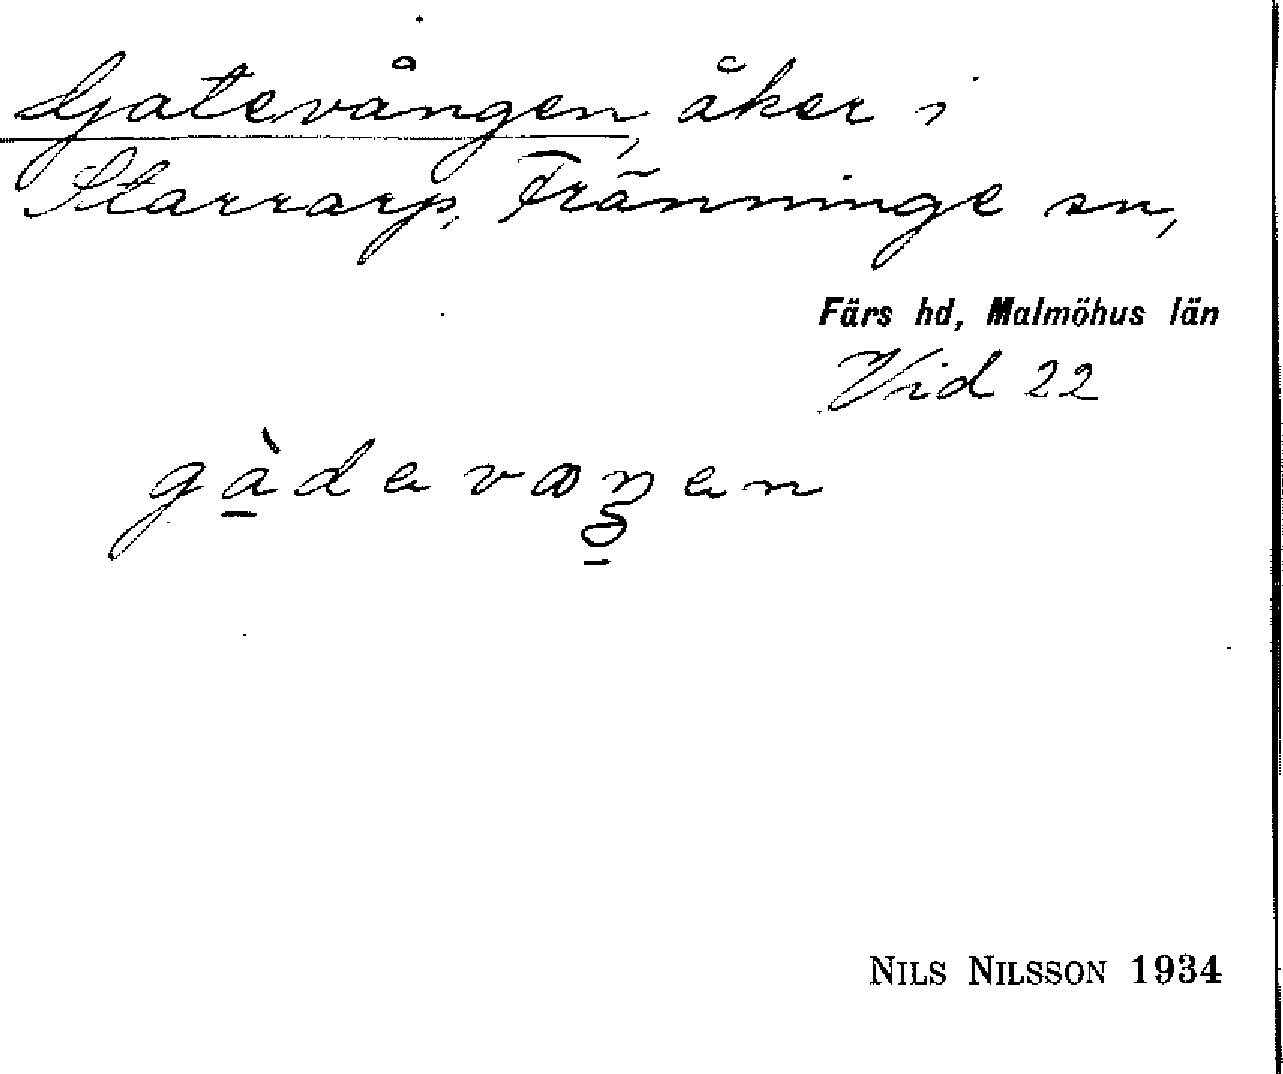 Gatevången, åker i
Starrarp, Tränninge sn,
Färs hd, Malmöhus län
Vid 22
gàdevaŋen
NILS NILSSON 1934